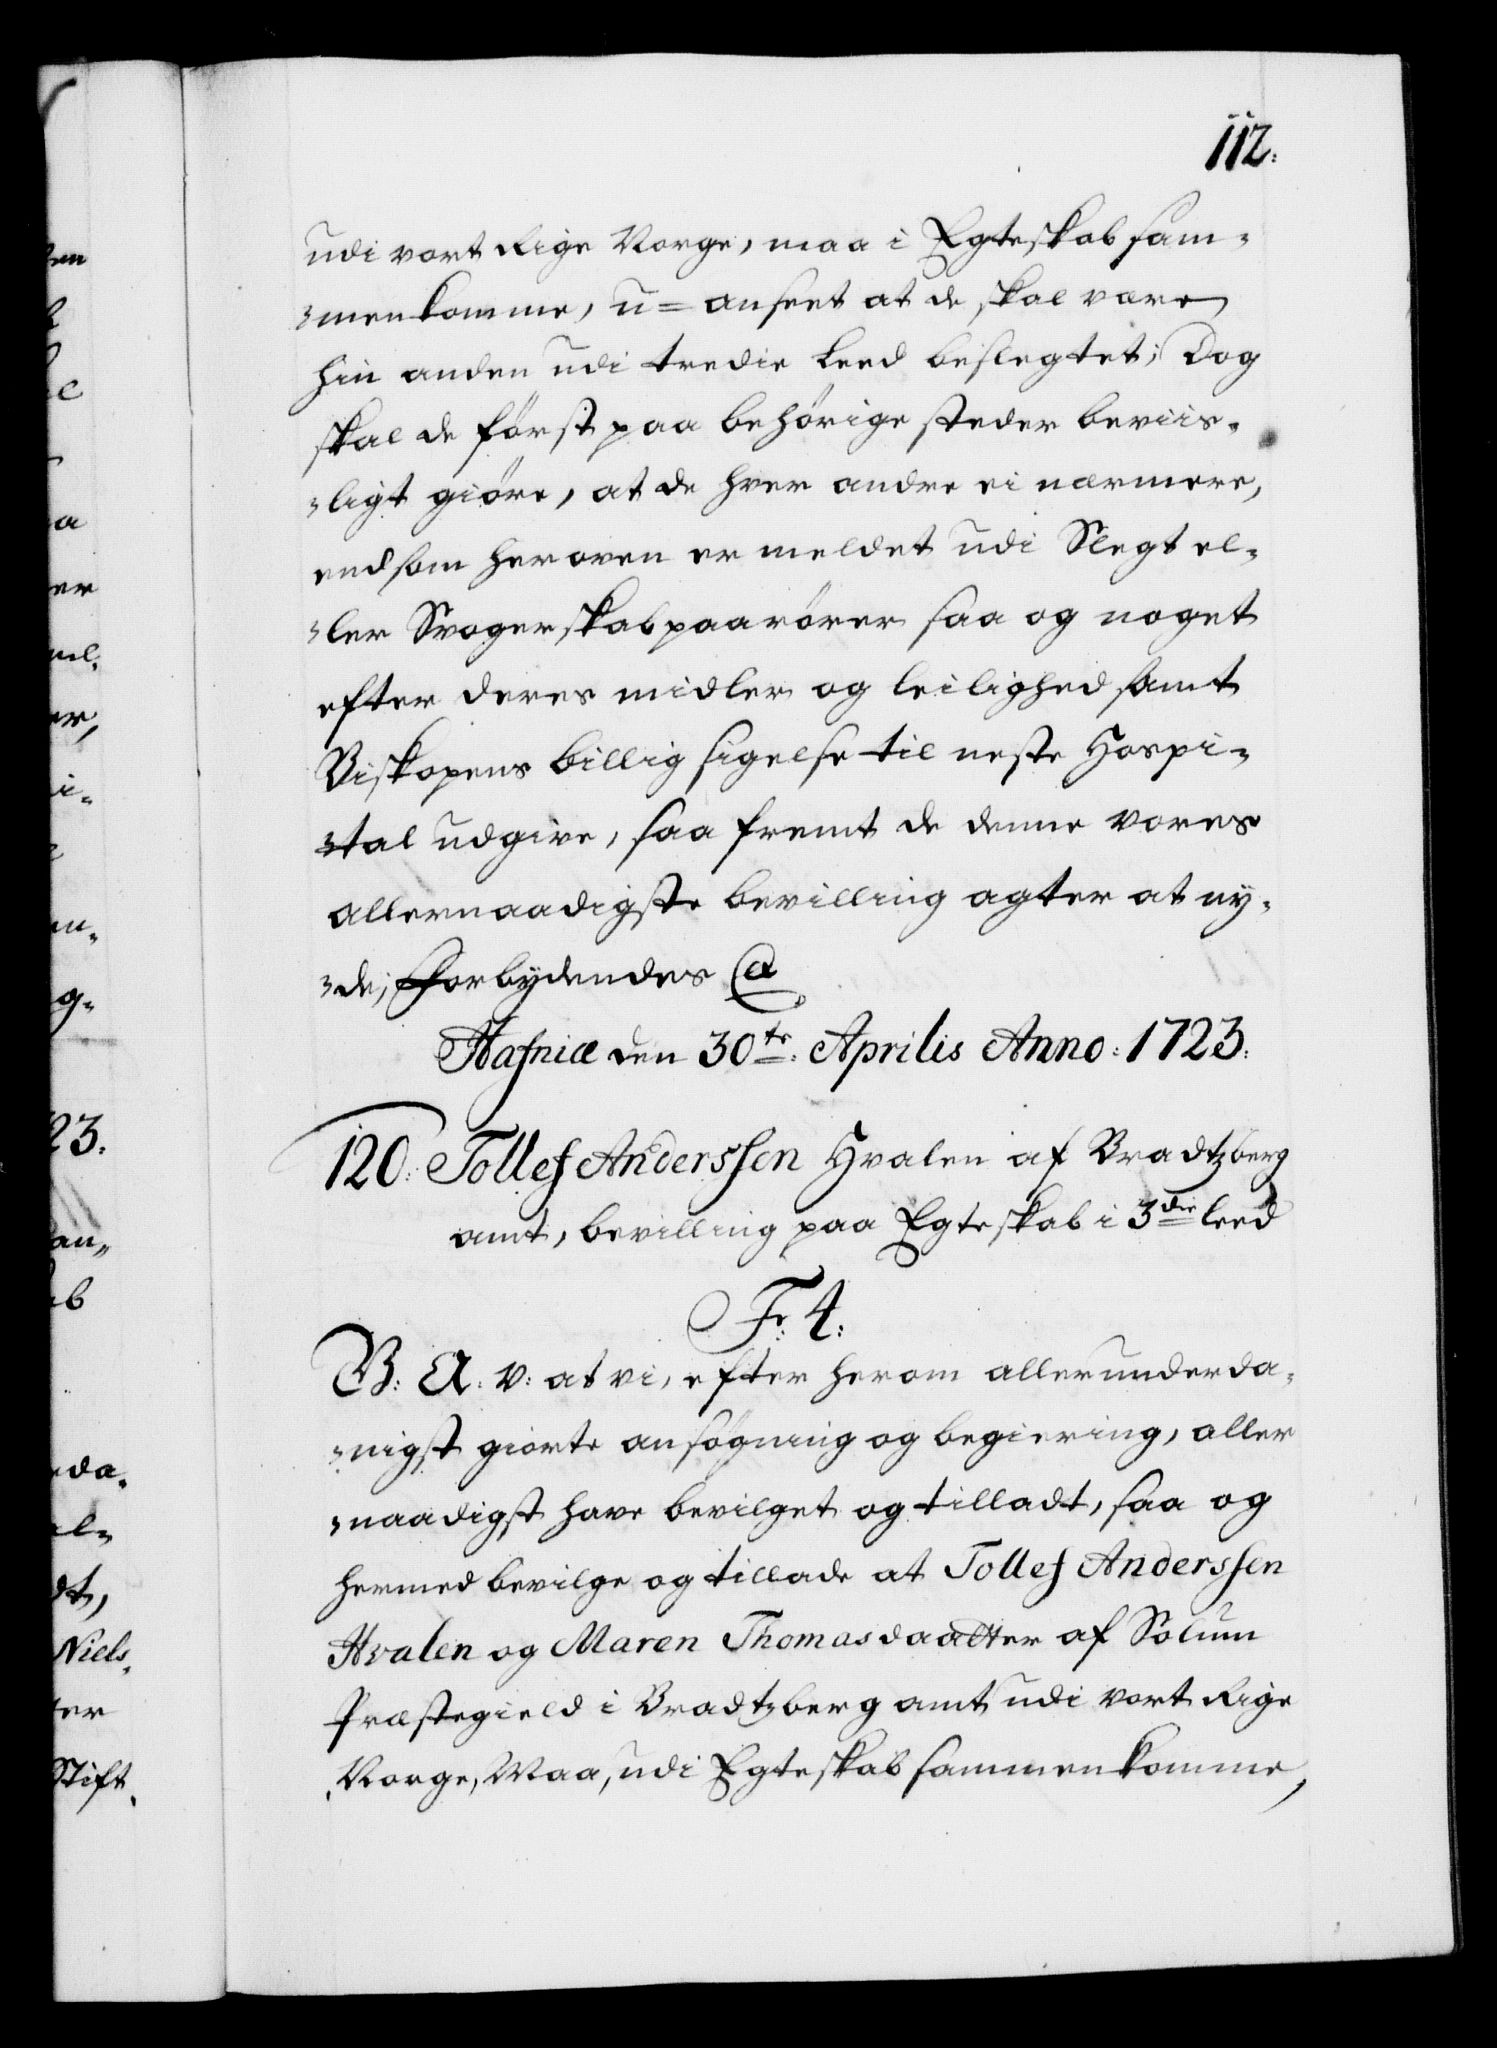 112.
udi vort Rige Norge, maa i Egteskab sam-
-menkomme, u=anseet at de skal være
hin anden udi tredie Leed beslegtet; Dog
skal de først paa behørige steder beviis-
-ligt giøre, at de hver andre ei nærmere,
end som heroven er meldet udi Slegt el-
-ler Svogerskab paarører saa og noget
efter deres midler og leilighed samt
Biskopens billig sigelse til neste Hospi-
-tal udgive, saa fremt de denne vores
allernaadigste bevilling agter at ny-
-de; Forbydendes @
Hafniæ den 30te. Aprilis Anno: 1723.
120. Tollef Anderssen Hvalen af Bradtzberg
amt, bevilling paa Egteskab i 3die leed
Fr: 4:
G: A: V: at vi, efter herom allerunderda-
-nigst giorte ansøgning og begiering, aller
-naadigst have bevilget og tilladt, saa og
hermed bevilge og tillade at Tollef Anderssen
Hvalen og Maren Thomasdaatter af Solum
Præstegield i Bradtzberg amt udi vort Rige
Norge, Maa, udi Egteskab sammenkomme,